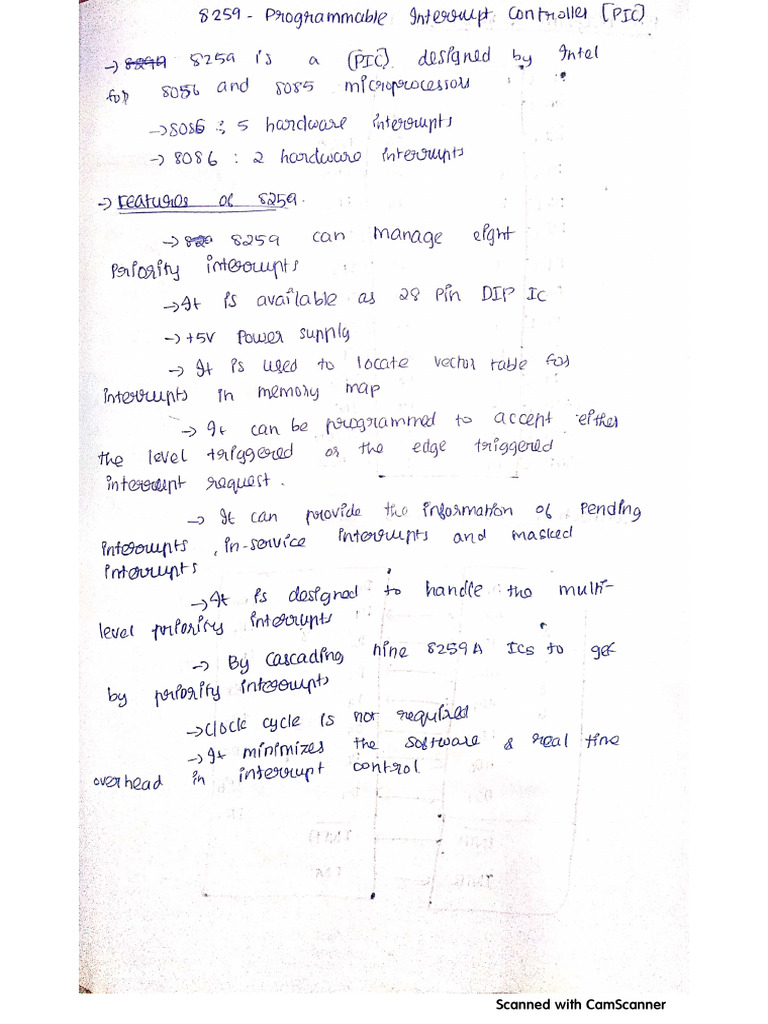 8259 - Programmable Interrupt Controller [PIC]
→ 8259 is a [PIC] designed by Intel
for 8056 and 8085 microprocessors
→ 8085 : 5 hardware interrupts
→ 8086 : 2 hardware interrupts
→ Features of 8259.
→ 8259 can manage eight
Priority interrupts
→ It is available as 28 Pin DIP IC
→ +5V Power supply
→ It is used to locate vector table for
interrupts in memory map
→ It can be programmed to accept either
the level triggered or the edge triggered
interrupt request.
→ It can provide the information of pending
interrupts, in-service interrupts and masked
interrupts
→ It is designed to handle the multi-
level priority interrupts
→ By cascading nine 8259A ICs to get
by priority interrupts
→ Clock cycle is not required
→ It minimizes the software & real time
overhead in interrupt control
Scanned with CamScanner